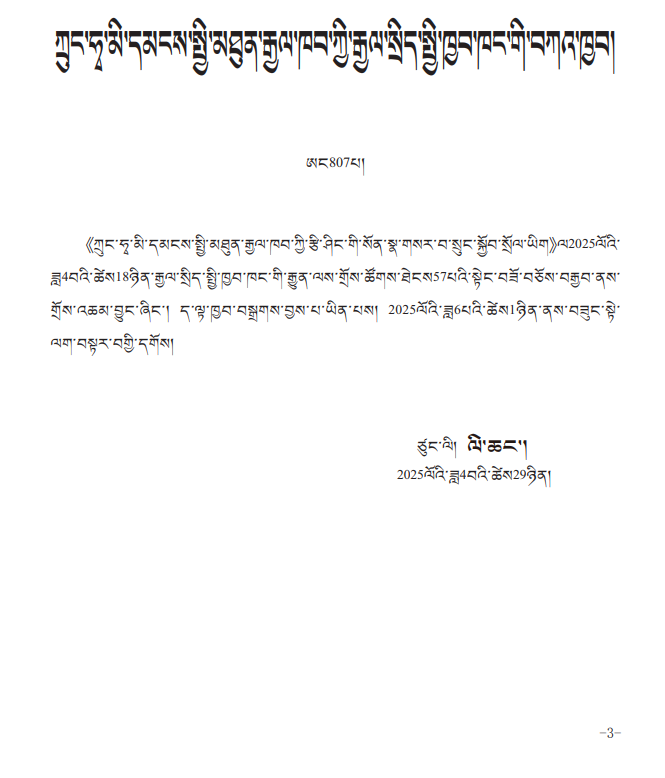 ཀྲུང་ཧྭ་མི་དམངས་སྤྱི་མཐུན་རྒྱལ་ཁབ་ཀྱི་རྒྱལ་སྲིད་སྤྱི་ཁྱབ་ཁང་གི་བཀའ་ཁྱབ།
ཨང807པ།
《ཀྲུང་ཧྭ་མི་དམངས་སྤྱི་མཐུན་རྒྱལ་ཁབ་ཀྱི་རྩི་ཤིང་གི་སོན་སྣ་གསར་བ་སྲུང་སྐྱོབ་སྲོལ་ཡིག》ལ2025ལོའི་
ཟླ4བའི་ཚེས18ཉིན་རྒྱལ་སྲིད་སྤྱི་ཁྱབ་ཁང་གི་རྒྱུན་ལས་གྲོས་ཚོགས་ཐེངས57པའི་སྟེང་བཟོ་བཅོས་བརྒྱབ་ནས་
གྲོས་འཆམ་བྱུང་ཞིང་། ད་ལྟ་ཁྱབ་བསྒྲགས་བྱས་པ་ཡིན་པས། 2025ལོའི་ཟླ6པའི་ཚེས1ཉིན་ནས་བཟུང་སྟེ་
ལག་བསྟར་བགྱི་དགོས།
ཙུང་ལི། ལི་ཆང་།
2025ལོའི་ཟླ4བའི་ཚེས29ཉིན།
-3-